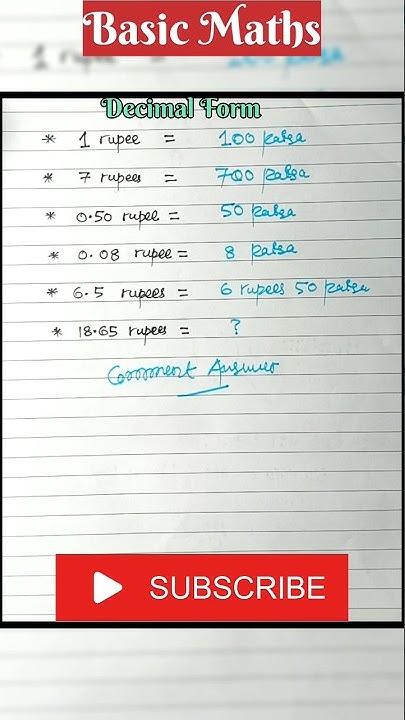 Basic Maths
Decimal Form
* 1 rupee = 100 paisa
* 7 rupees = 700 paisa
* 0.50 rupee = 50 paisa
* 0.08 rupee = 8 paisa
* 6.5 rupees = 6 rupees 50 paisa
* 18.65 rupees = ?
Comment Answer
SUBSCRIBE